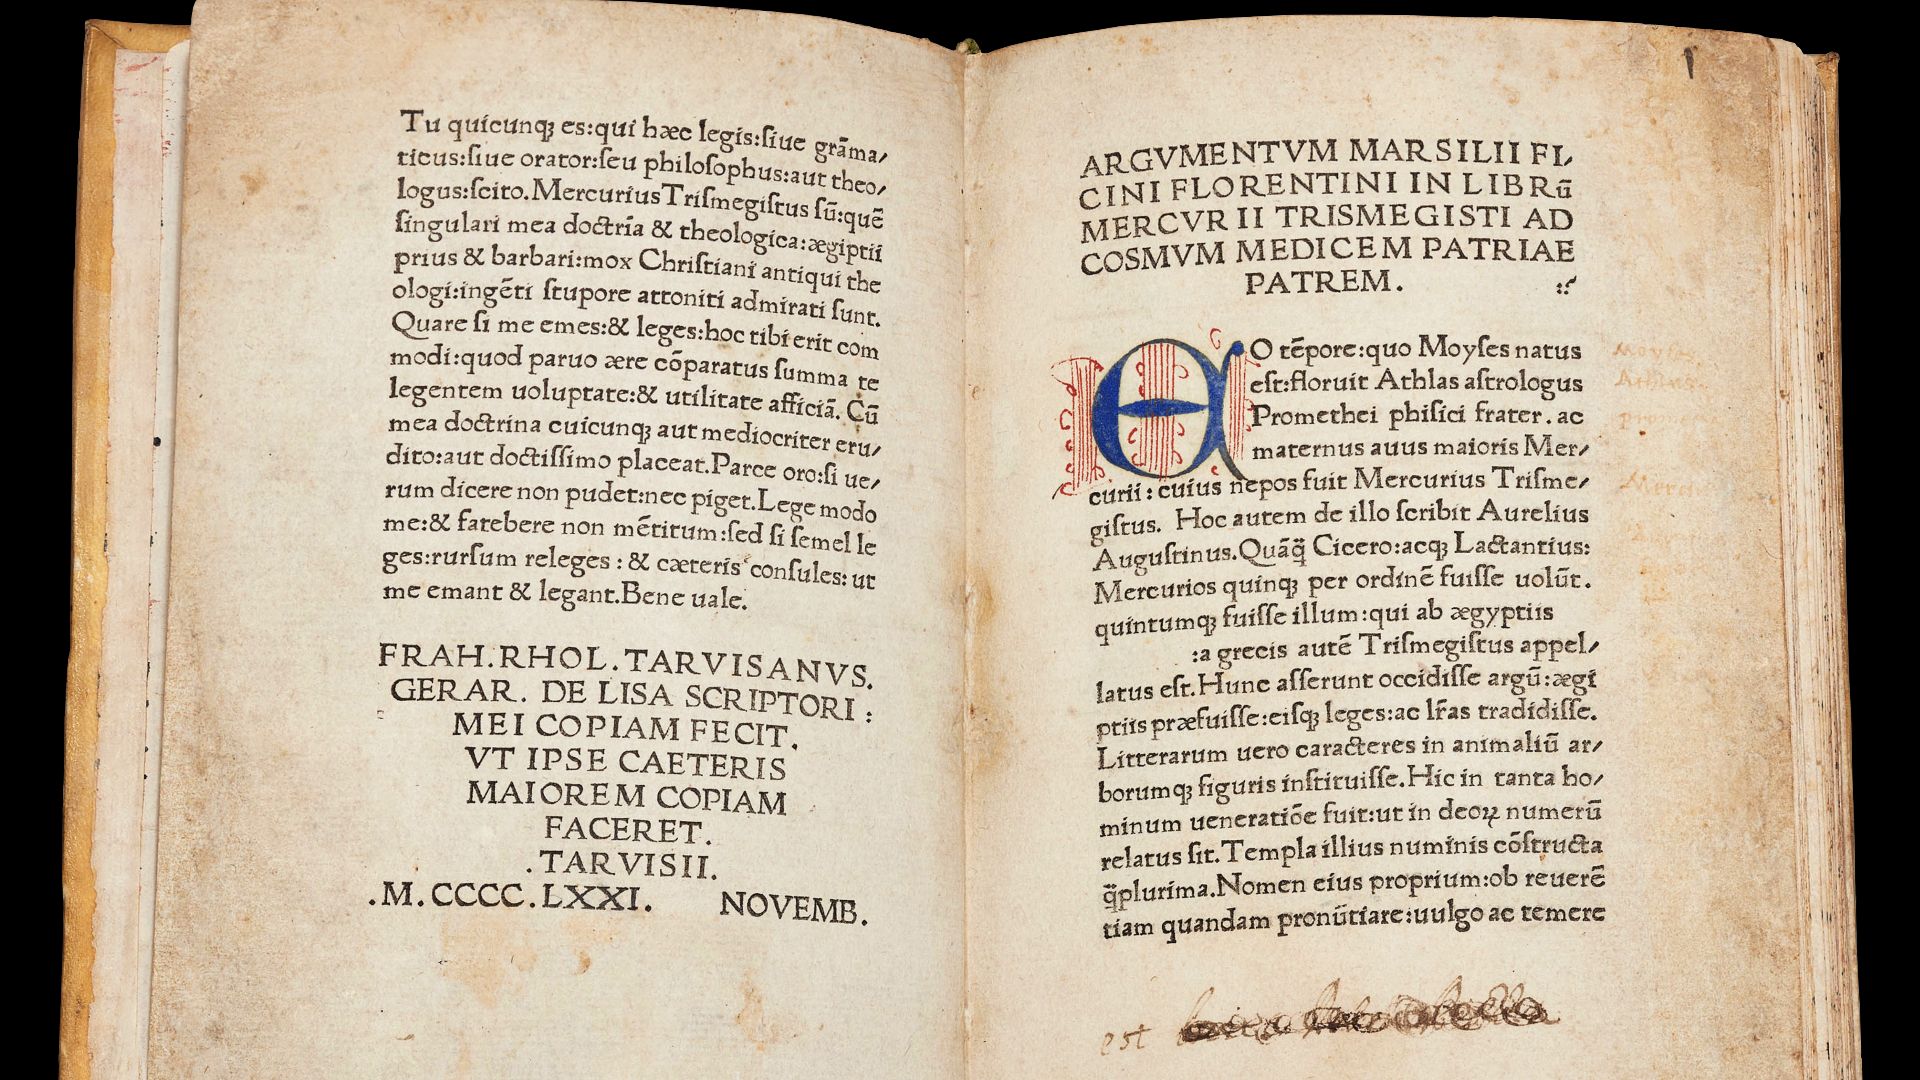 Tu quicunqꝫ es:qui hæc legis:ſiue grāma⸗
ticus:ſiue orator:ſeu philoſophus:aut theo⸗
logus:ſcito.Mercurius Triſmegiſtus ſū:quē
ſingulari mea doctrīa & theologica:ægiptii
prius & barbari:mox Chriſtiani antiqui the
ologi:ingēti ſtupore attoniti admirati ſunt.
Quare ſi me emes:& leges:hoc tibi erit com
modi:quod paruo ære cōparatus ſumma te
legentem uoluptate:& utilitate afficiā. Cū
mea doctrina cuicunqꝫ aut mediocriter eru⸗
dito:aut doctiſſimo placeat.Parce oro:ſi ue⸗
rum dicere non pudet:nec piget.Lege modo
me:& fatebere non mētitum:ſed ſi ſemel le
ges:rurſum releges : & cæteris conſules: ut
me emant & legant.Bene uale.
FRAH.RHOL.TARVISANVS.
GERAR. DE LISA SCRIPTORI :
MEI COPIAM FECIT.
VT IPSE CAETERIS
MAIOREM COPIAM
FACERET.
.TARVISII.
.M.CCCC.LXXI. NOVEMB.
ARGVMENTVM MARSILII FI⸗
CINI FLORENTINI IN LIBRū
MERCVRII TRISMEGISTI AD
COSMVM MEDICEM PATRIAE
PATREM.
EO tēpore:quo Moyſes natus
eſt:floruit Athlas aſtrologus
Promethei phiſici frater. ac
maternus auus maioris Mer⸗
curii: cuius nepos fuit Mercurius Triſme⸗
giſtus. Hoc autem de illo ſcribit Aurelius
Auguſtinus.Quāq̄ Cicero:acqꝫ Lactantius:
Mercurios quinqꝫ per ordinē fuiſſe uolūt.
quintumqꝫ fuiſſe illum:qui ab ægyptiis
:a grecis autē Triſmegiſtus appel⸗
latus eſt.Hunc aſſerunt occidiſſe argū:ægi
ptiis præfuiſſe:eiſqꝫ leges:ac lr̄as tradidiſſe.
Litterarum uero caracteres in animaliū ar⸗
borumqꝫ figuris inſtituiſſe.Hic in tanta ho⸗
minum ueneratiōe fuit:ut in deoꝝ numerū
relatus ſit.Templa illius numinis cōſtructa
q̄plurima.Nomen eius proprium:ob reuerē
tiam quandam pronūtiare:uulgo ac temere
est